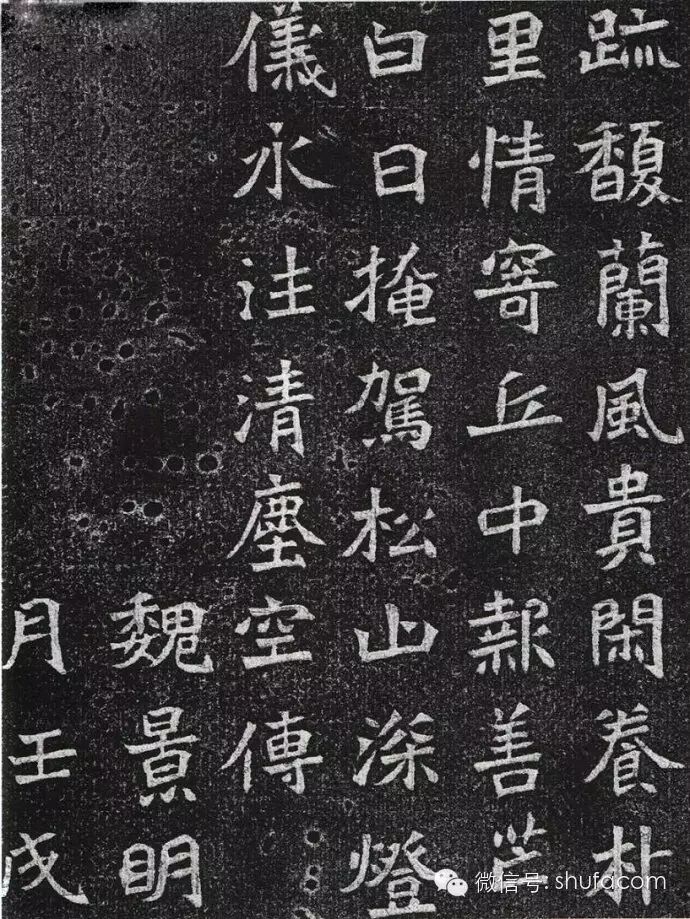 疏馥蘭風貴閑養朴
里情寄丘中報善芒
白日掩駕松山深燈
儀水洼清塵空傳
魏景明
月壬戌
微信号: shufacom